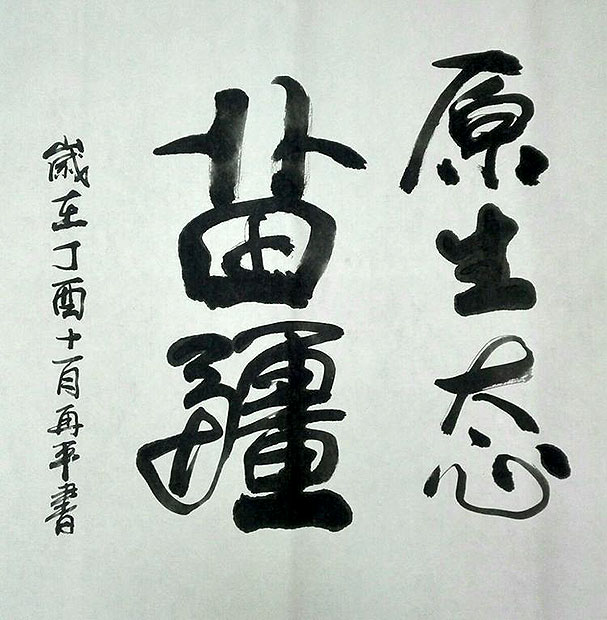 原生态
苗疆
歲在丁酉十百再平書